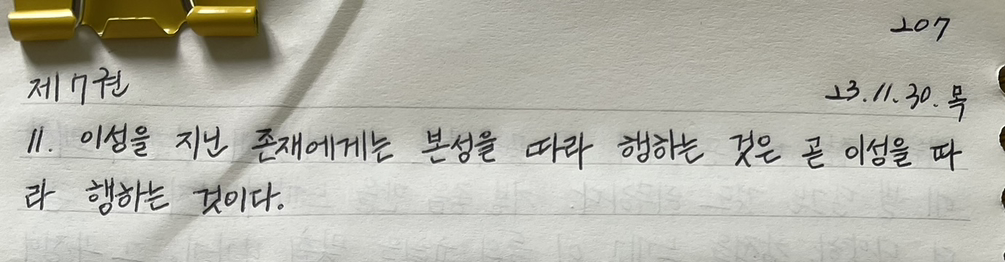 207
제 7권
23.11.30. 목
11. 이성을 지닌 존재에게는 본성을 따라 행하는 것은 곧 이성을 따
라 행하는 것이다.